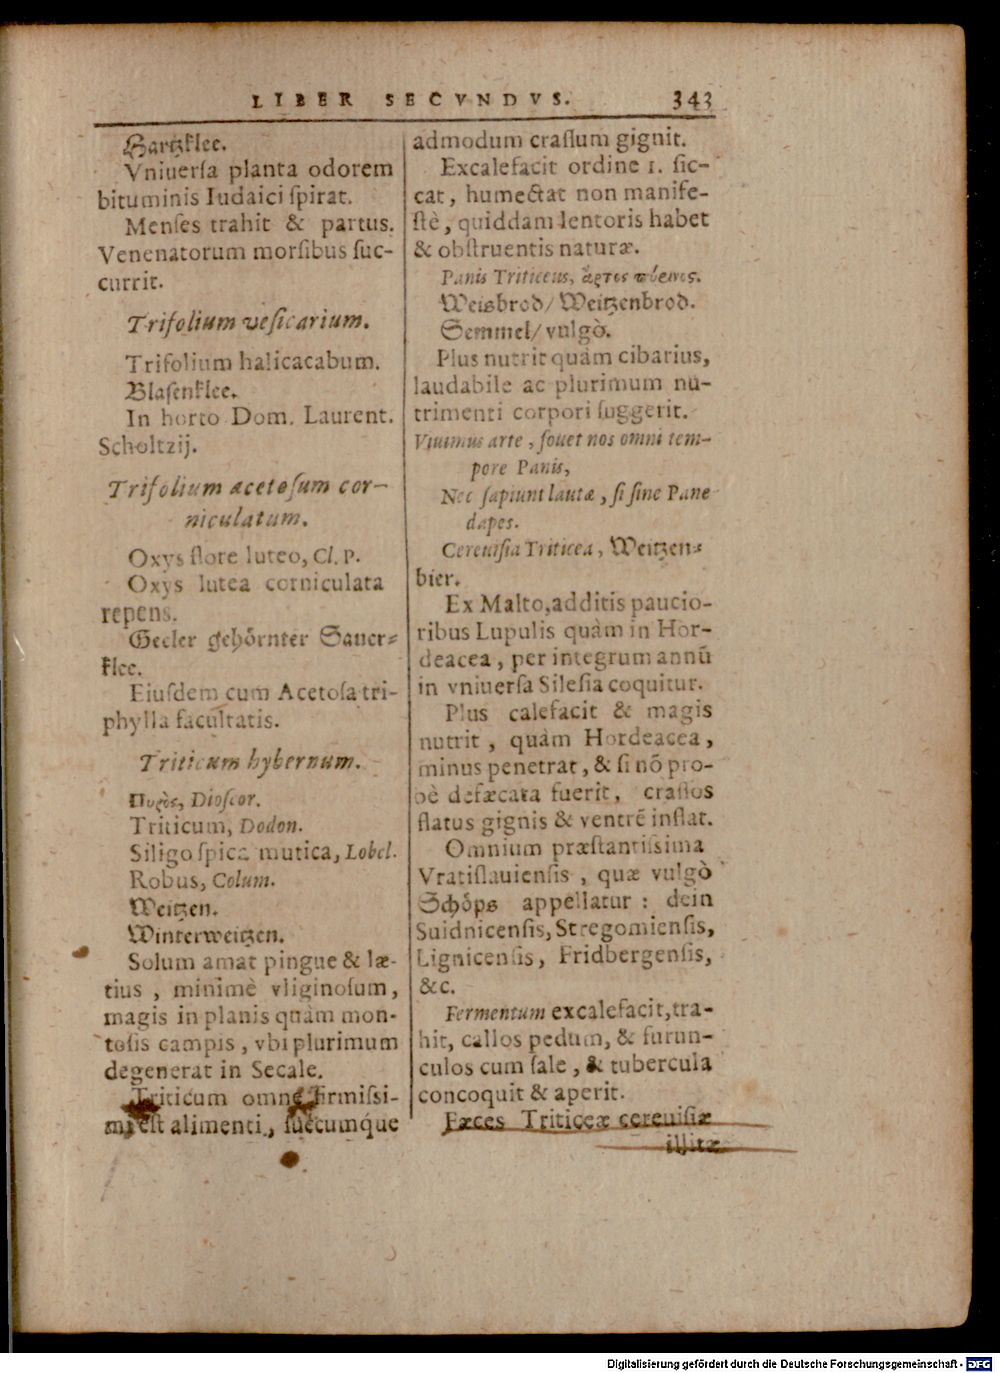 LIBER SECVNDVS. 343
Hartzklee.
Vniuerſa planta odorem
bituminis Iudaici ſpirat.
Menſes trahit & partus.
Venenatorum morſibus ſuc-
currit.
Trifolium veſicarium.
Trifolium halicacabum.
Blaſenklee.
In horto Dom. Laurent.
Scholtzij.
Trifolium acetoſum cor-
niculatum.
Oxys flore luteo, Cl. P.
Oxys lutea corniculata
repens.
Geeler gehoͤrnter Sauer⸗
klee.
Eiuſdem cum Acetoſa tri-
phylla facultatis.
Triticum hybernum.
Πυρὸς, Dioſcor.
Triticum, Dodon.
Siligo ſpica mutica, Lobel.
Robus, Colum.
Weitzen.
Winterweitzen.
Solum amat pingue & læ-
tius, minimè vliginoſum,
magis in planis quàm mon-
toſis campis, vbi plurimum
degenerat in Secale.
Triticum omne firmiſſi-
mi eſt alimenti, ſuccumq́ue
admodum craſſum gignit.
Excalefacit ordine 1. ſic-
cat, humectat non manife-
ſtè, quiddam lentoris habet
& obſtruentis naturæ.
Panis Triticeus, ἄρτος πύρινος.
Weisbrod/ Weitzenbrod.
Semmel/ vulgò.
Plus nutrit quàm cibarius,
laudabile ac plurimum nu-
trimenti corpori ſuggerit.
Viuimus arte, fouet nos omni tem-
pore Panis,
Nec ſapiunt lautæ, ſi ſine Pane
dapes.
Cereuiſia Triticea, Weitzen⸗
bier.
Ex Malto, additis paucio-
ribus Lupulis quàm in Hor-
deacea, per integrum annū
in vniuerſa Sileſia coquitur.
Plus calefacit & magis
nutrit, quàm Hordeacea,
minus penetrat, & ſi nō pro-
bè defæcata fuerit, craſſos
flatus gignis & ventrē inflat.
Omnium præſtantiſsima
Vratiſlauienſis, quæ vulgò
Schoͤps appellatur: dein
Suidnicenſis, Stregomienſis,
Lignicenſis, Fridbergenſis,
&c.
Fermentum excalefacit, tra-
hit, callos pedum, & furun-
culos cum ſale, & tubercula
concoquit & aperit.
Fæces Triticeæ cereuiſiæ
illitæ
Digitalisierung gefördert durch die Deutsche Forschungsgemeinschaft - DFG